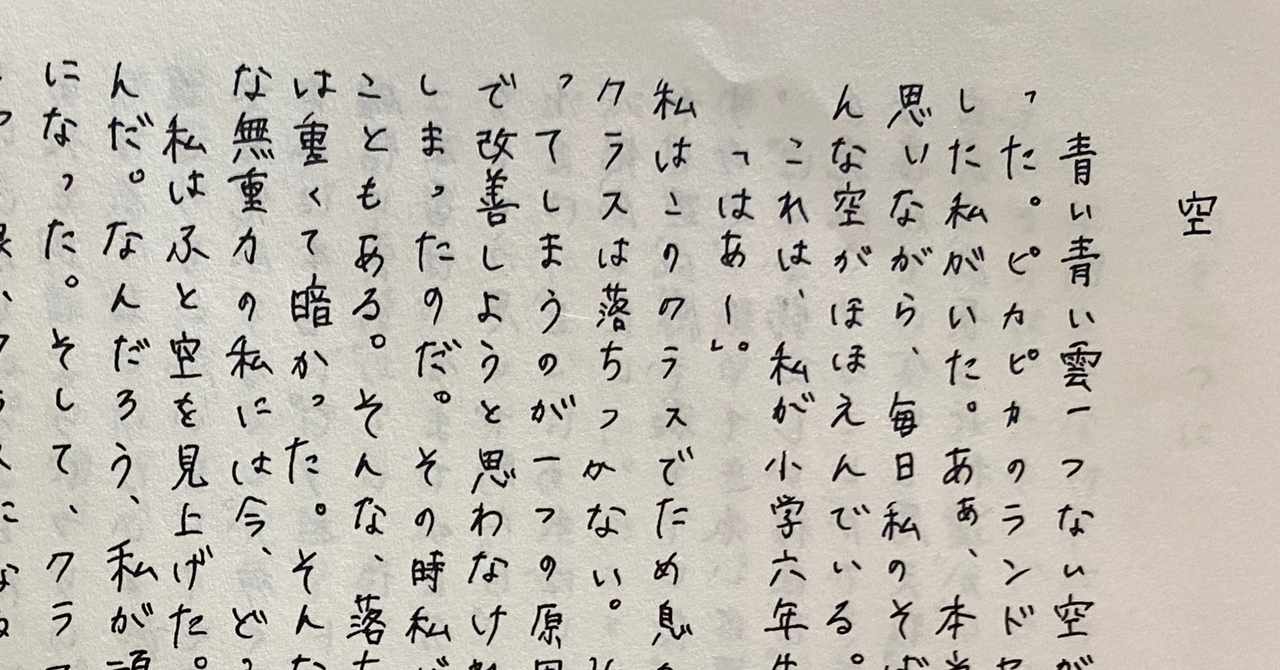 空
青い青い雲一つない空が
った。ピカピカのランドセ
した私がいた。あぁ、本当
思いながら、毎日私のそば
んな空がほほえんでいる。
これは、私が小学六年生
「はあー」。
私はこのクラスでため息
クラスは落ちつかない。
ってしまうのが一つの原因
で改善しようと思わなけ
しまったのだ。その時私が
こともある。そんな、落ち
は重くて暗かった。そんな
な無重力の私には今、ど
私はふと空を見上げた。
んだ。なんだろう、私が
になった。そして、クラス